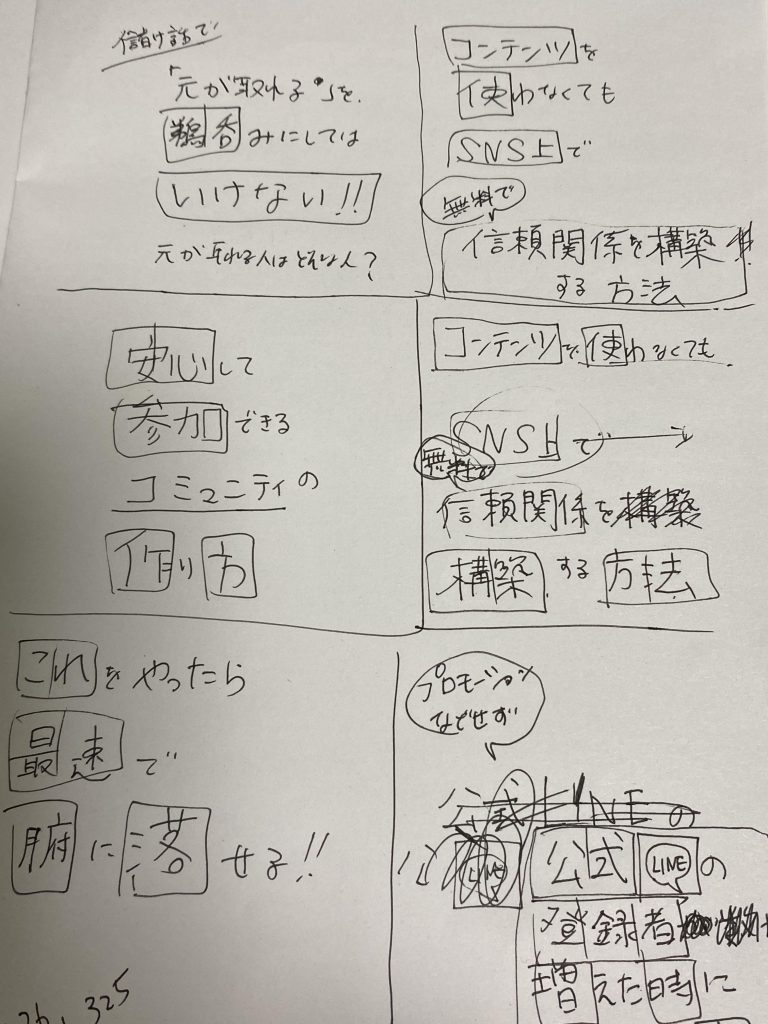 儲け話で
「元が取れる。」を
鵜呑みにしては
いけない!!
元が取れる人はどんな人?
コンテンツを
使わなくても
SNS上で
無料で
信頼関係を構築
する方法
安心して
参加できる
コミュニティの
作り方
コンテンツを使わなくても
SNS上で
無料で
信頼関係を構築
構築する方法
これをやったら
最速で
腑に落せる!!
プロモーション
などせず
公式LINEの
公 LINE
公式LINEの
登録者
増えた時に
325